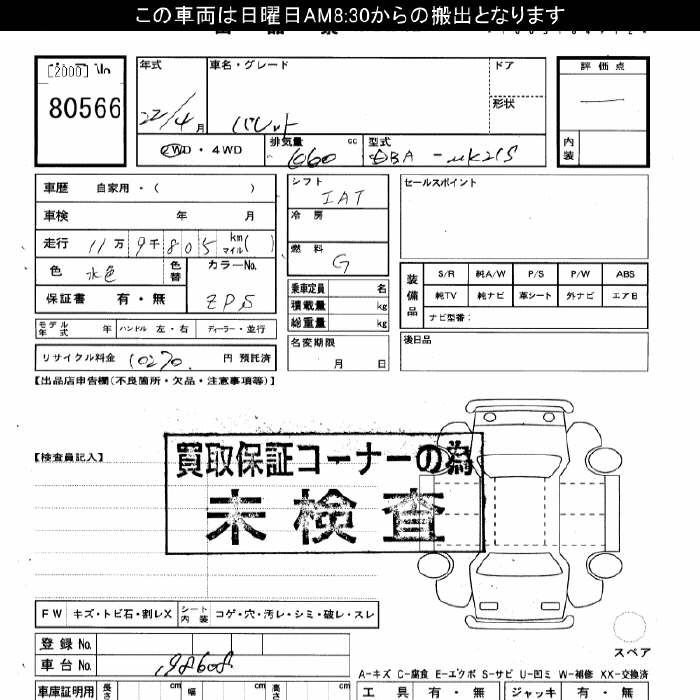 この車両は日曜日AM8:30からの搬出となります
[2000]
80566
年式
22/4月
車名・グレード
パレット
ドア
形状
評価点
—
内装
2WD・4WD
排気量
660 cc
型式
DBA-MK21S
車歴 自家用・( )
車検 年 月
走行 11万9千805 km マイル( )
色 水色 色替
カラーNo.
ZPS
保証書 有・無
モデル年式 年 ハンドル 左・右 ディーラー・並行
リサイクル料金 10270 円 預託済
シフト
IAT
冷房
燃料
G
乗車定員 名
積載量 kg
総重量 kg
名変期限
月 日
セールスポイント
装備品
S/R 純A/W P/S P/W ABS
純TV 純ナビ 革シート 外ナビ エアB
ナビ型番:
後日品
【出品店申告欄(不良箇所・欠品・注意事項等)】
【検査員記入】
買取保証コーナーの為
未検査
FW キズ・トビ石・割レX シート内装 コゲ・穴・汚レ・シミ・破レ・スレ
登録No.
車台No. 198608
スペア
A-キズ C-腐食 E-エクボ S-サビ U-凹ミ W-補修 XX-交換済
車庫証明用 長さ cm 幅 cm 高さ cm
工具 有・無 ジャッキ 有・無